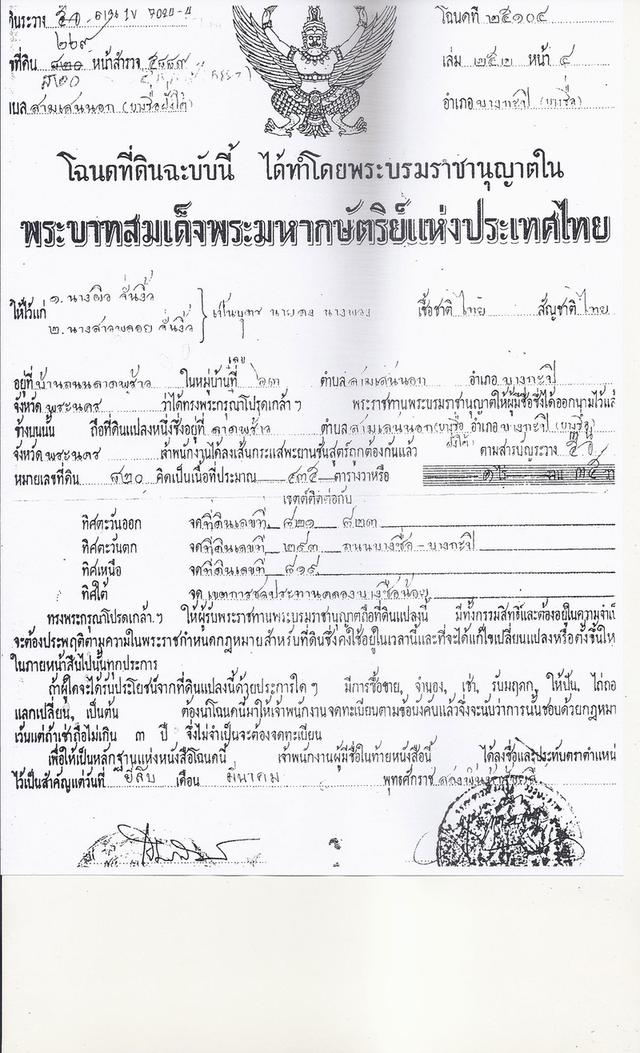 โฉนดที่ ๒๕๑๐๔
ที่ดิน ๘๒๐ หน้าสำรวจ
เล่ม ๒๕๒ หน้า ๔
สามเสนนอก (บางซื่อฝั่งใต้)
อำเภอ บางกะปิ (บางซื่อ)
โฉนดที่ดินฉะบับนี้ ได้ทำโดยพระบรมราชานุญาตใน
พระบาทสมเด็จพระมหากษัตริย์แห่งประเทศไทย
ให้ไว้แก่ ๑. นางผิว จั่นงิ้ว
๒. นางสาวพลอย จั่นงิ้ว
เป็นบุตร นายคง นางพวง เชื้อชาติ ไทย สัญชาติ ไทย
อยู่ที่ บ้านถนนลาดพร้าว ในหมู่บ้านที่ ตำบล สามเสนนอก อำเภอ บางกะปิ
จังหวัด พระนคร ว่าได้ทรงพระกรุณาโปรดเกล้า ฯ พระราชทานพระบรมราชานุญาตให้ผู้มีชื่อซึ่งได้ออกนามไว้แล้
ข้างบนนั้น ถือที่ดินแปลงหนึ่งซึ่งอยู่ที่ ลาดพร้าว ตำบล สามเสนนอก (บางซื่อฝั่งใต้) อำเภอ บางกะปิ (บางซื่อ)
จังหวัด พระนคร เจ้าพนักงานได้ลงเส้นกระแสพระยานชันสูตร์ถูกต้องกันแล้ว ตามสารบัญระวาง
หมายเลขที่ดิน ๘๒๐ คิดเป็นเนื้อที่ประมาณ ๔๓๕ ตารางวาหรือ
เขตต์ติดต่อกับ
ทิศตะวันออก จดที่ดินเลขที่ ๘๒๑ ๘๒๓
ทิศตะวันตก จดที่ดินเลขที่ ๒๕๓ ถนนบางซื่อ - บางกะปิ
ทิศเหนือ จดที่ดินเลขที่ ๘๑๙
ทิศใต้ จดเขตการชลประทานคลองบางซื่อน้อย
ทรงพระกรุณาโปรดเกล้า ฯ ให้ผู้รับพระราชทานพระบรมราชานุญาตถือที่ดินแปลงนี้ มีทั้งกรรมสิทธิ์และต้องอยู่ในความจำเ
จะต้องประพฤติตามความในพระราชกำหนดกฎหมายสำหรับที่ดินซึ่งคงใช้อยู่ในเวลานี้และที่จะได้แก้ไขเปลี่ยนแปลงหรือตั้งขึ้นให
ในภายหน้าสืบไปนั้นทุกประการ
ถ้าผู้ใดจะได้รับประโยชน์จากที่ดินแปลงนี้ด้วยประการใด ๆ มีการซื้อขาย, จำนอง, เช่า, รับมฤดก, ให้ปัน, ไถ่ถอ
แลกเปลี่ยน, เป็นต้น ต้องนำโฉนดนี้มาให้เจ้าพนักงานจดทะเบียนตามข้อบังคับแล้วจึ่งจะนับว่าการนั้นชอบด้วยกฎหมา
เว้นแต่ถ้าเช่าถือไม่เกิน ๓ ปี จึ่งไม่จำเป็นจะต้องจดทะเบียน
เพื่อให้เป็นหลักฐานแห่งหนังสือโฉนดนี้ เจ้าพนักงานผู้มีชื่อในท้ายหนังสือนี้ ได้ลงชื่อและประทับตราตำแหน่
ไว้เป็นสำคัญแต่วันที่ ยี่สิบ เดือน มีนาคม พุทธศักราช